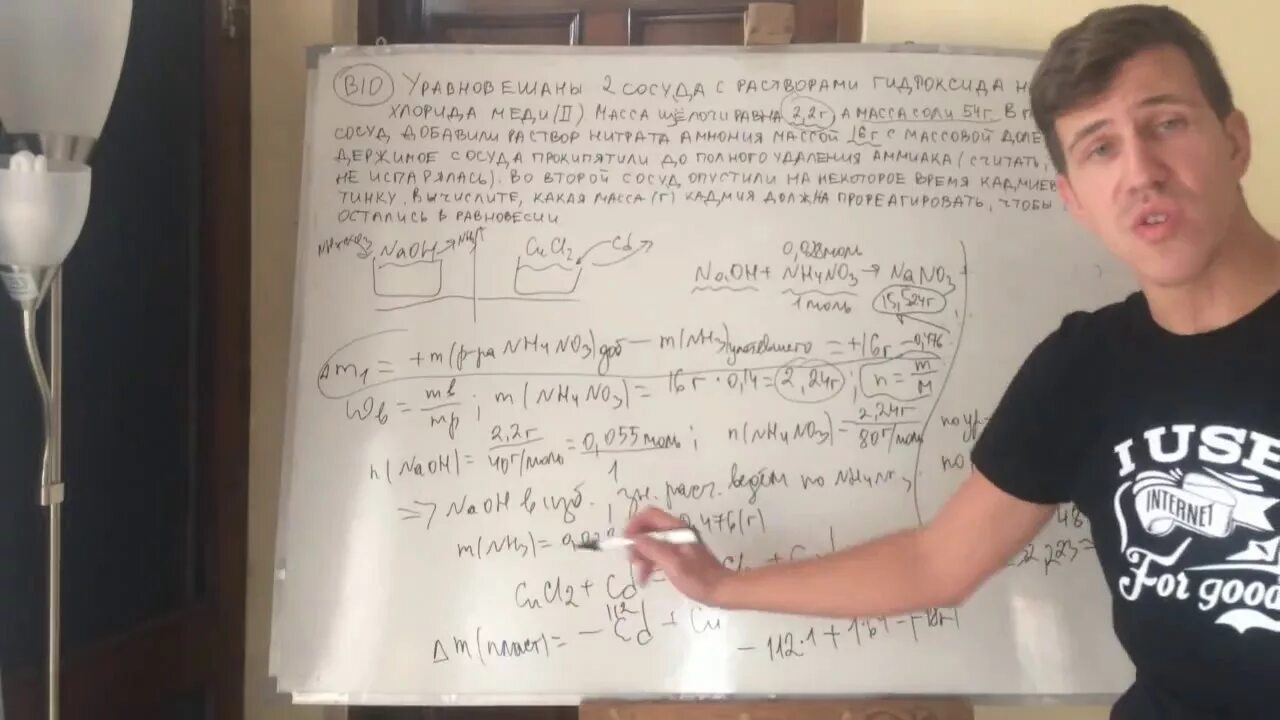 В10 УРАВНОВЕШАНЫ 2 СОСУДА С РАСТВОРАМИ ГИДРОКСИДА
ХЛОРИДА МЕДИ (II) МАССА ЩЕЛОЧИ РАВНА 2,2г А МАССА СОЛИ 54г. В
СОСУД ДОБАВИЛИ РАСТВОР НИТРАТА АММОНИЯ МАССОЙ 16г С МАССОВОЙ ДОЛЕ
ДЕРЖИМОЕ СОСУДА ПРОКИПЯТИЛИ ДО ПОЛНОГО УДАЛЕНИЯ АММИАКА (СЧИТАТЬ,
НЕ ИСПАРЯЛАСЬ). ВО ВТОРОЙ СОСУД ОПУСТИЛИ НА НЕКОТОРОЕ ВРЕМЯ КАДМИЕВ
ТИНКУ. ВЫЧИСЛИТЕ, КАКАЯ МАССА (Г) КАДМИЯ ДОЛЖНА ПРОРЕАГИРОВАТЬ, ЧТОБЫ
ОСТАЛИСЬ В РАВНОВЕСИИ
NH4NO3 NaOH NH3↑ CuCl2 Cd
0,028моль
NaOH + NH4NO3 → NaNO3
1моль 15,524г
Δm1 = +m(р-ра NH4NO3)доб − m(NH3)улетевшего = +16г −0,476
ωв = mв/mр; m(NH4NO3) = 16г · 0,14 = 2,24г; n = m/M
n(NaOH) = 2,2г/40г/моль = 0,055моль; n(NH4NO3) = 2,24г/80г/моль
1
⇒ NaOH в изб.
m(NH3)= 0,476(г)
CuCl2 + Cd
Δm(пласт)= − Cd + Cu
112
− 112·1 + 1·64
I USE
INTERNET
For good